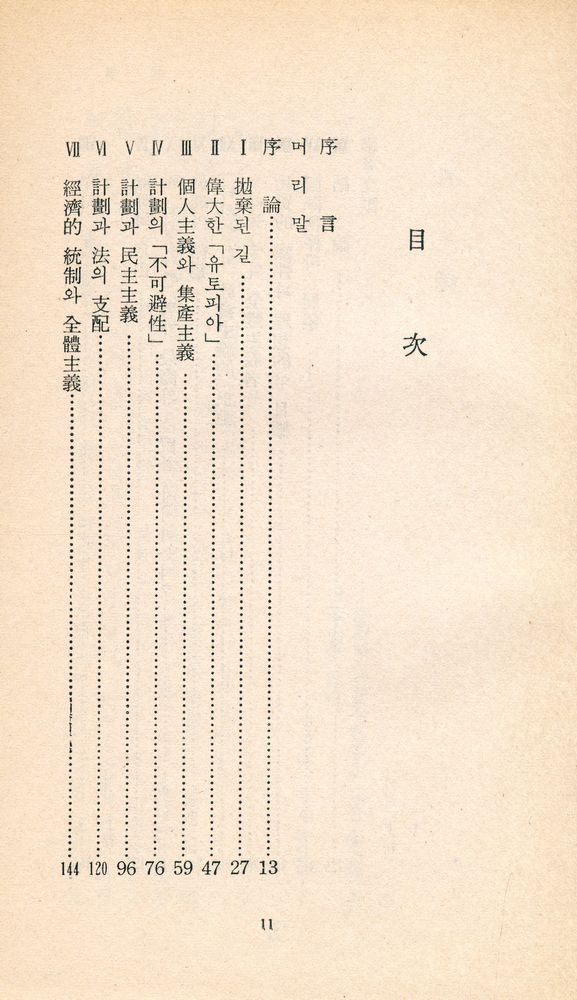 目 次
序 言
머리말
序 論 13
Ⅰ 拋棄된 길 27
Ⅱ 偉大한 「유토피아」 47
Ⅲ 個人主義와 集產主義 59
Ⅳ 計劃의 「不可避性」 76
Ⅴ 計劃과 民主主義 96
Ⅵ 計劃과 法의 支配 120
Ⅶ 經濟的 統制와 全體主義 144
11